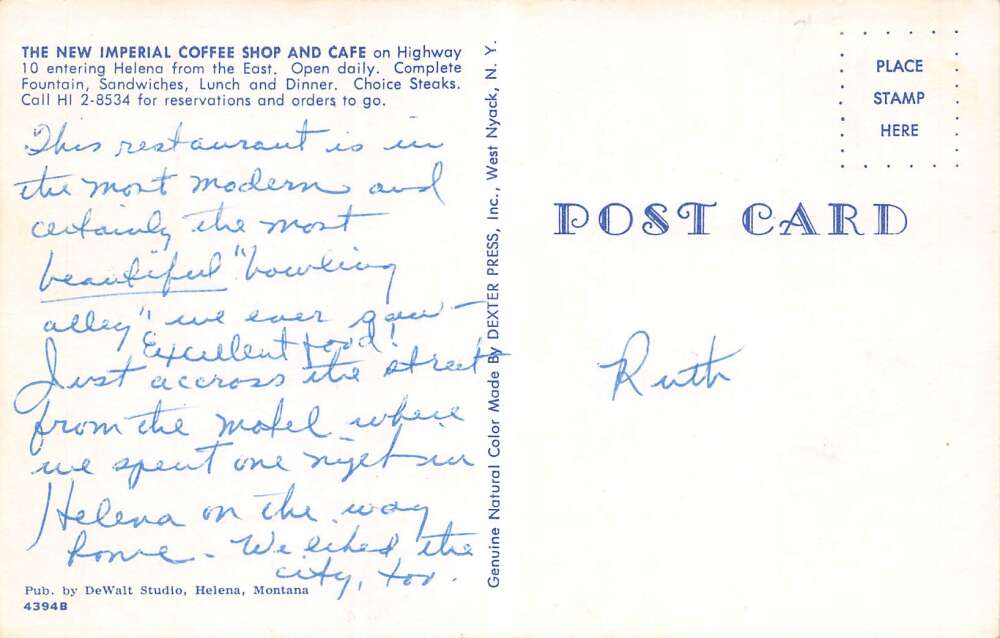 THE NEW IMPERIAL COFFEE SHOP AND CAFE on Highway
10 entering Helena from the East. Open daily. Complete
Fountain, Sandwiches, Lunch and Dinner. Choice Steaks.
Call HI 2-8534 for reservations and orders to go.
This restaurant is in
the most modern and
certainly the most
beautiful "bowling
alley", we ever saw –
Excellent food!
Just accross the street
from the motel where
we spent one night in
Helena on the way
home – We liked the
city, too.
Pub. by DeWalt Studio, Helena, Montana
4394B
Genuine Natural Color Made By DEXTER PRESS, Inc., West Nyack, N. Y.
PLACE
STAMP
HERE
POST CARD
Ruth